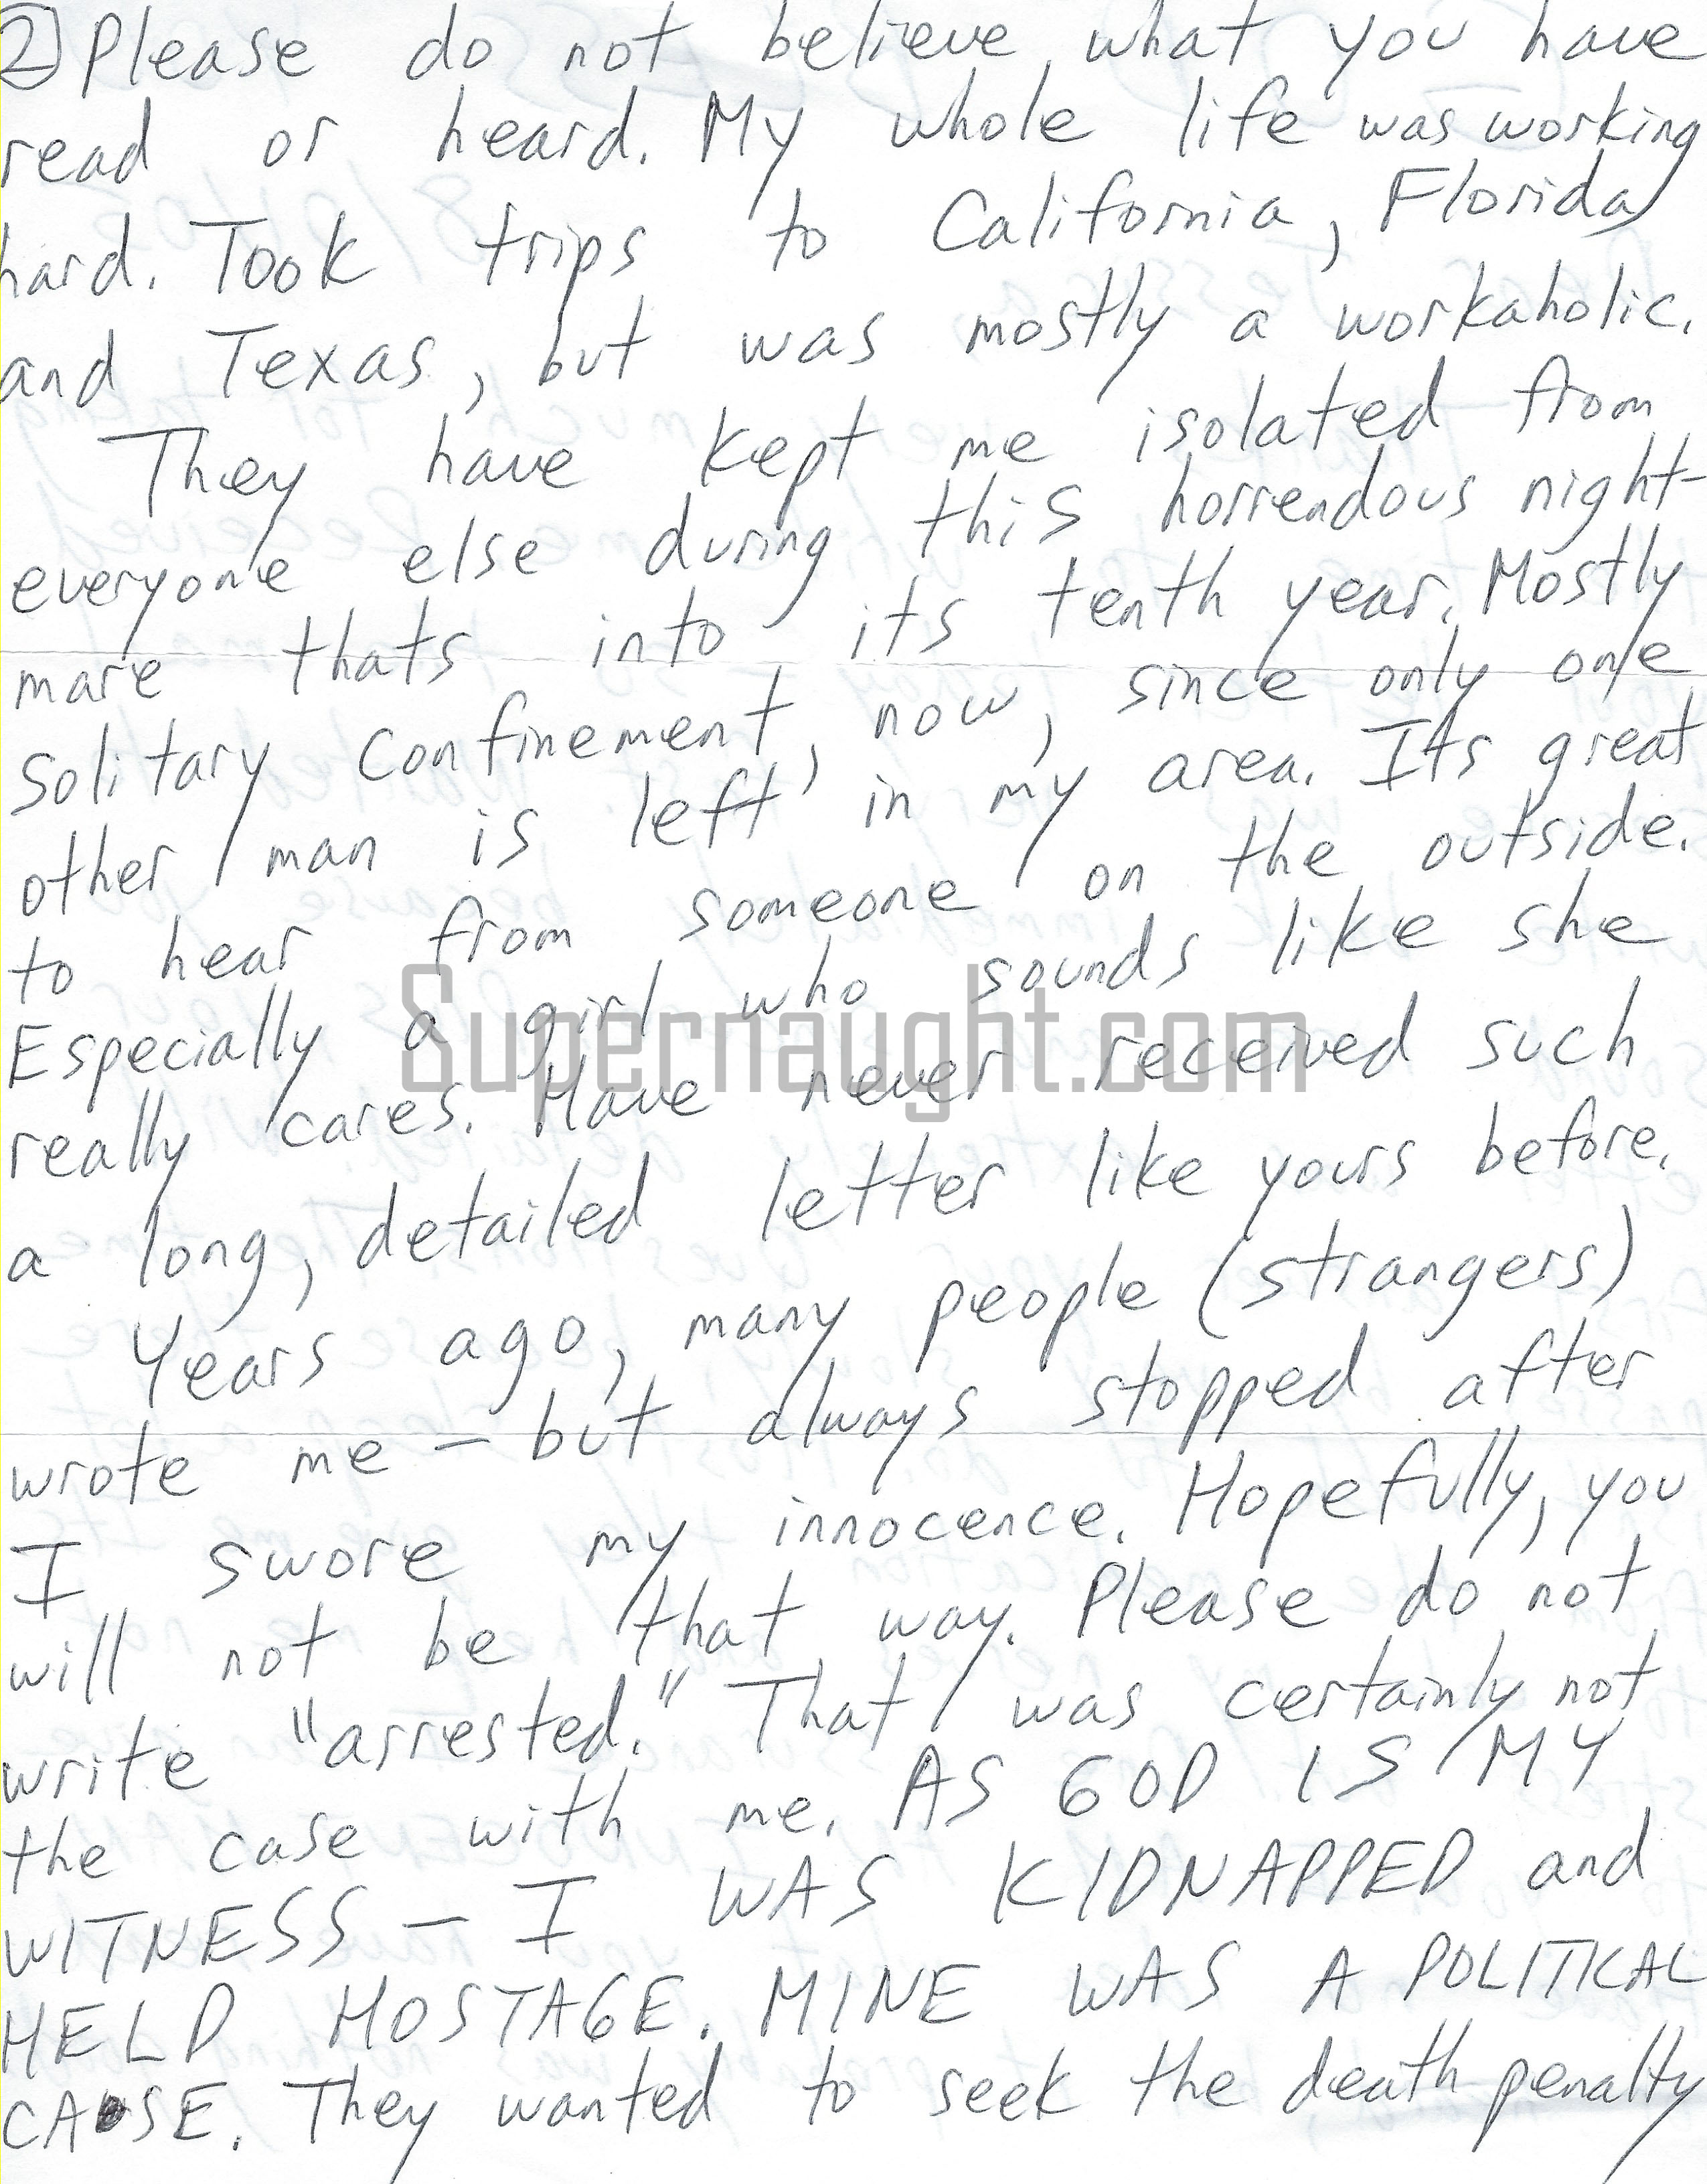 ② Please do not believe what you have
read or heard. My whole life was working
hard. Took trips to California, Florida
and Texas, but was mostly a workaholic.
They have kept me isolated from
everyone else during this horrendous night-
mare thats into its tenth year. Mostly
solitary confinement, now, since only one
other man is left in my area. Its great
to hear from someone on the outside.
Especially a girl who sounds like she
really cares. Have never received such
a long, detailed letter like yours before.
Years ago, many people (strangers)
wrote me - but always stopped after
I swore my innocence. Hopefully, you
will not be that way. Please do not
write "arrested." That was certainly not
the case with me. AS GOD IS MY
WITNESS - I WAS KIDNAPPED and
HELD HOSTAGE. MINE WAS A POLITICAL
CASE. They wanted to seek the death penalty
Supernaught.com